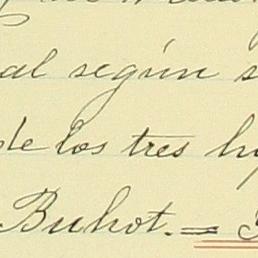 al según s
de los tres hi
Buhot. =